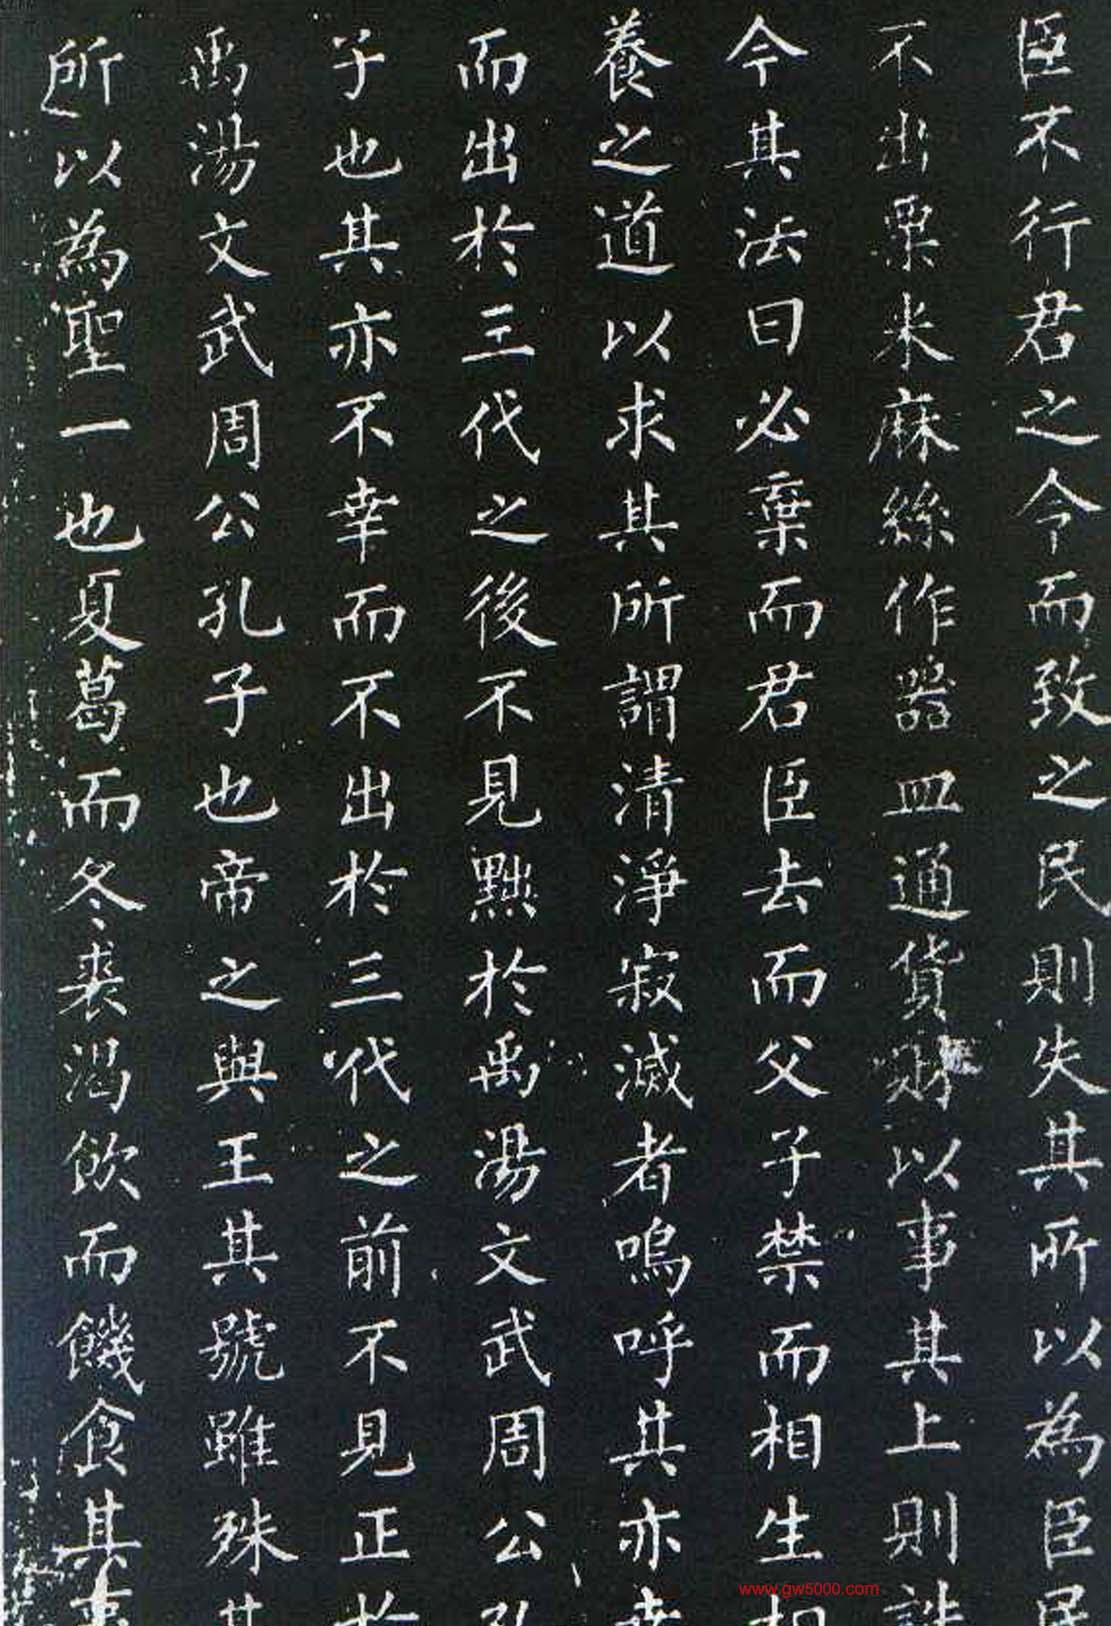 臣不行君之令而致之民則失其所以為臣民
不出粟米麻絲作器皿通貨財以事其上則誅
今其法曰必棄而君臣去而父子禁而相生相
養之道以求其所謂清淨寂滅者嗚呼其亦幸
而出於三代之後不見黜於禹湯文武周公孔
子也其亦不幸而不出於三代之前不見正於
禹湯文武周公孔子也帝之與王其號雖殊其
所以為聖一也夏葛而冬裘渴飲而饑食其事
www.gw5000.com